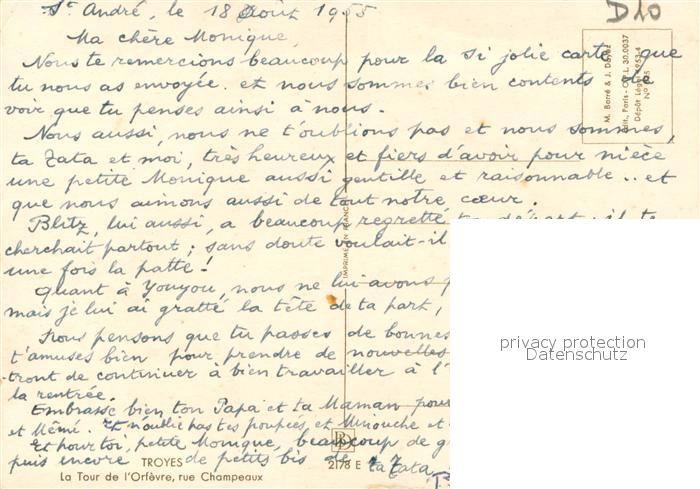 St André, le 18 Août 1955
D20
Ma chère Monique,
Nous te remercions beaucoup pour la si jolie carte que
tu nous as envoyée. et nous sommes bien contents de
voir que tu penses ainsi à nous.
Nous aussi, nous ne t'oublions pas et nous sommes,
ta Tata et moi, très heureux et fiers d'avoir pour nièce
une petite Monique aussi gentille et raisonnable.. et
que nous aimons aussi de tout notre cœur.
Blitz, lui aussi, a beaucoup regretté ton départ ; il te
cherchait partout ; sans doute voulait-il
une fois la patte !
Quant à Youyou, nous ne lui avons
mais je lui ai gratté la tête de ta part,
Nous pensons que tu passes de bonnes
t'amuses bien pour prendre de nouvelles
tront de continuer à bien travailler à l'
la rentrée.
Embrasse bien ton Papa et ta Maman pour
et Mémé. Et n'oublie pas tes poupées, et Minouche et
Et pour toi, petite Monique, beaucoup de
puis encore de petits bis de ta Tata
M. Barré & J. Dayez
Édit., Paris - O.P.L. 30.0037
Dépôt Légal 1953-4
IMPRIMÉ EN FRANCE
privacy protection
Datenschutz
TROYES
BD
2178 E
La Tour de l'Orfèvre, rue Champeaux